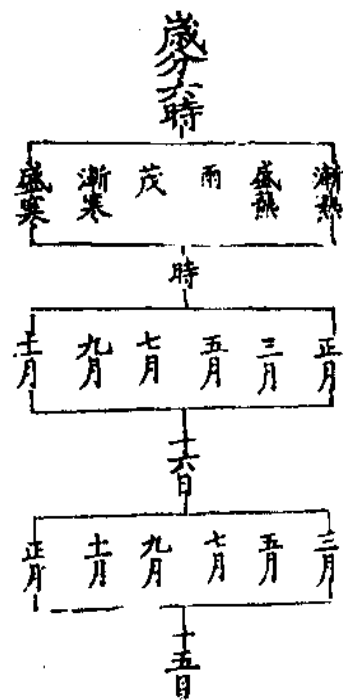 歲分六時
漸熱
盛熱
雨
茂
漸寒
盛寒
時
正月
三月
五月
七月
九月
十一月
十六日
三月
五月
七月
九月
十一月
正月
十五日